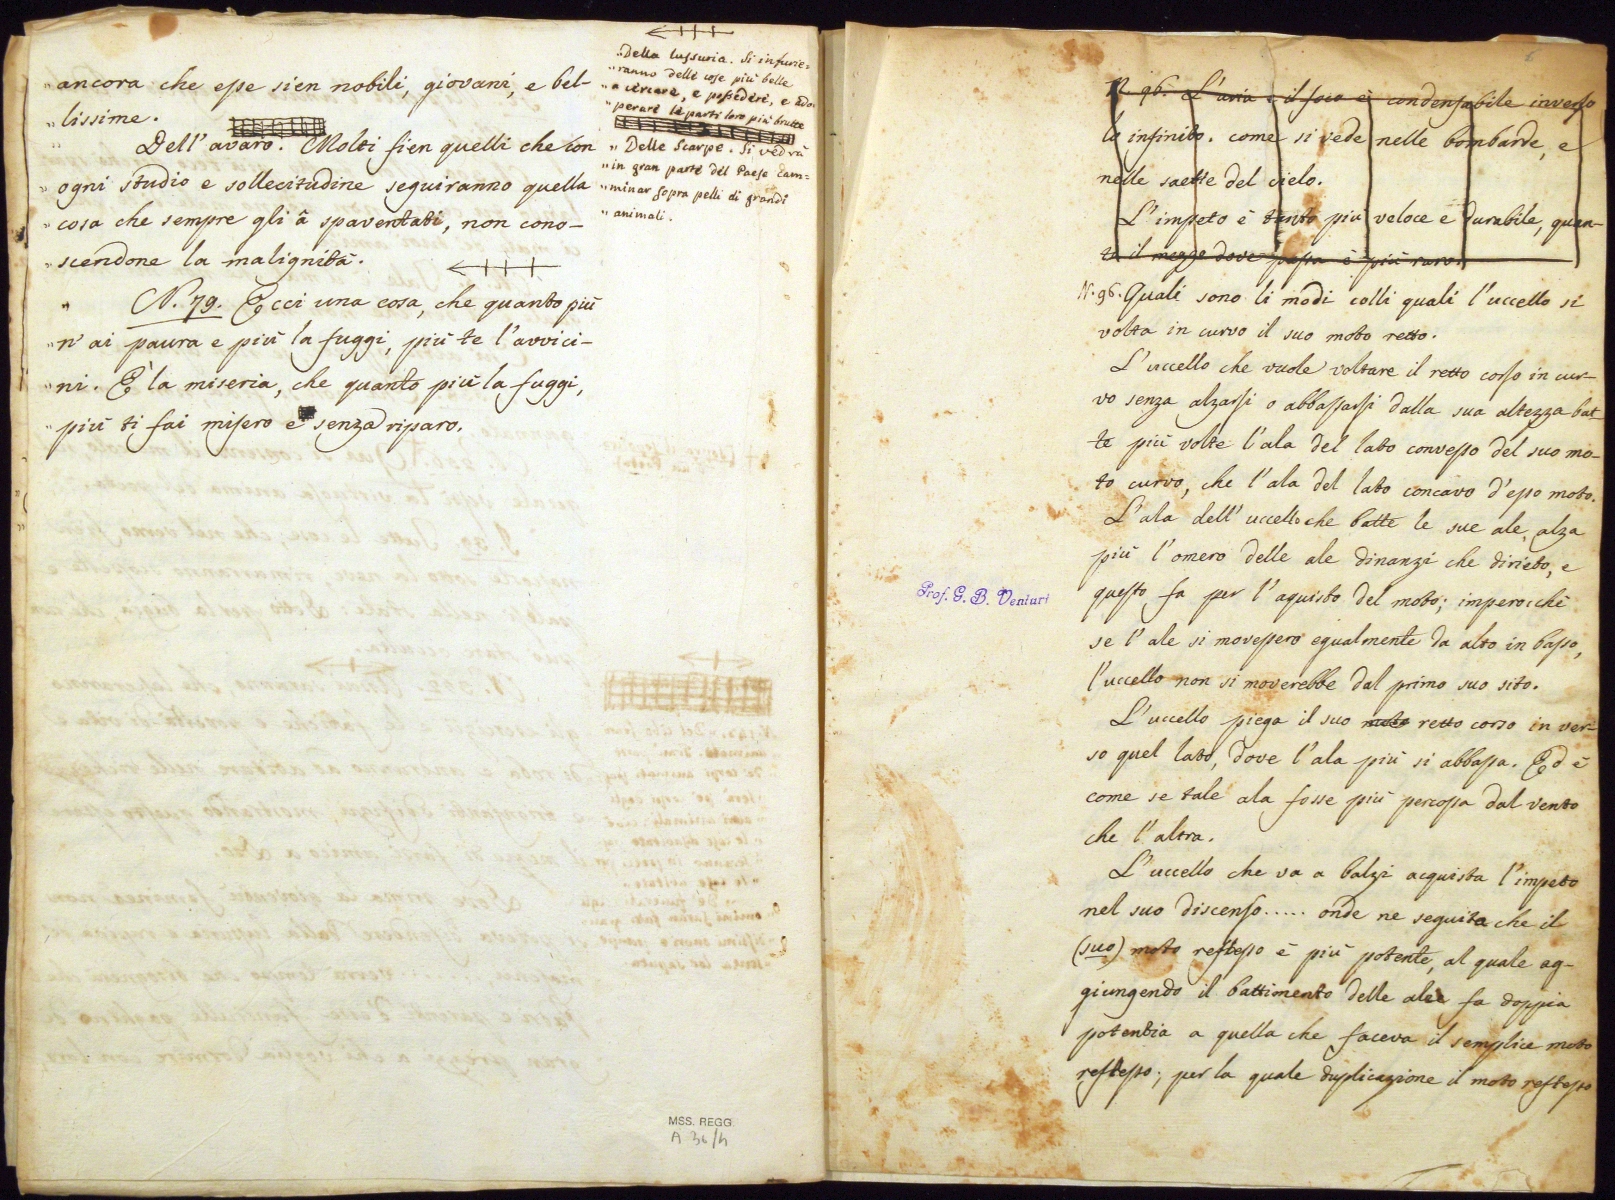 „ ancora che esse sien nobili, giovani, e bel-
„ lissime.
„ Dell' avaro. Molti fien quelli che con
„ ogni studio e sollecitudine seguiranno quella
„ cosa che sempre gli à spaventati, non cono-
„ scendone la malignità.
„ N. 79. Ecci una cosa, che quanto più
„ n' ai paura e più la fuggi, più te l'avvici-
„ ni. È la miseria, che quanto più la fuggi,
„ più ti fai misero e senza riparo.
„ Della lussuria. Si infurie=
„ ranno delle cose più belle
„ a cercare, e possedere, e ado-
„ perare le parti loro più brutte
„ Delle Scarpe. Si vedrà
„ in gran parte del Paese cam=
„ minar sopra pelli di grandi
„ animali.
MSS. REGG.
A 36/4
N. 96. L'aria è il foco è condensabile inverso
lo infinito. come si vede nelle bombarde, e
nelle saette del cielo.
L'impeto è tanto più veloce e durabile, quan-
to il mezzo dove passa è più raro.
N. 96. Quali sono li modi colli quali l'uccello si
volta in curvo il suo moto retto.
L'uccello che vuole voltare il retto corso in cur-
vo senza alzarsi o abbassarsi dalla sua altezza bat-
te più volte l'ala del lato convesso del suo mo-
to curvo, che l'ala del lato concavo d'esso moto.
L'ala dell' uccello che batte le sue ale, alza
più l'omero delle ale dinanzi che dirieto, e
questo fa per l'aquisto del moto; imperocchè
se l'ale si movessero egualmente da alto in basso,
l'uccello non si moverebbe dal primo suo sito.
L'uccello piega il suo moto retto corso in ver-
so quel lato, dove l'ala più si abbassa. Ed è
come se tale ala fosse più percossa dal vento
che l'altra.
L'uccello che va a balzi acquista l'impeto
nel suo discenso..... onde ne seguita che il
(suo) moto reflesso è più potente, al quale ag-
giungendo il battimento delle alie fa doppia
potentia a quella che faceva il semplice moto
reflesso; per la quale duplicazione il moto reflesso
Prof. G. B. Venturi